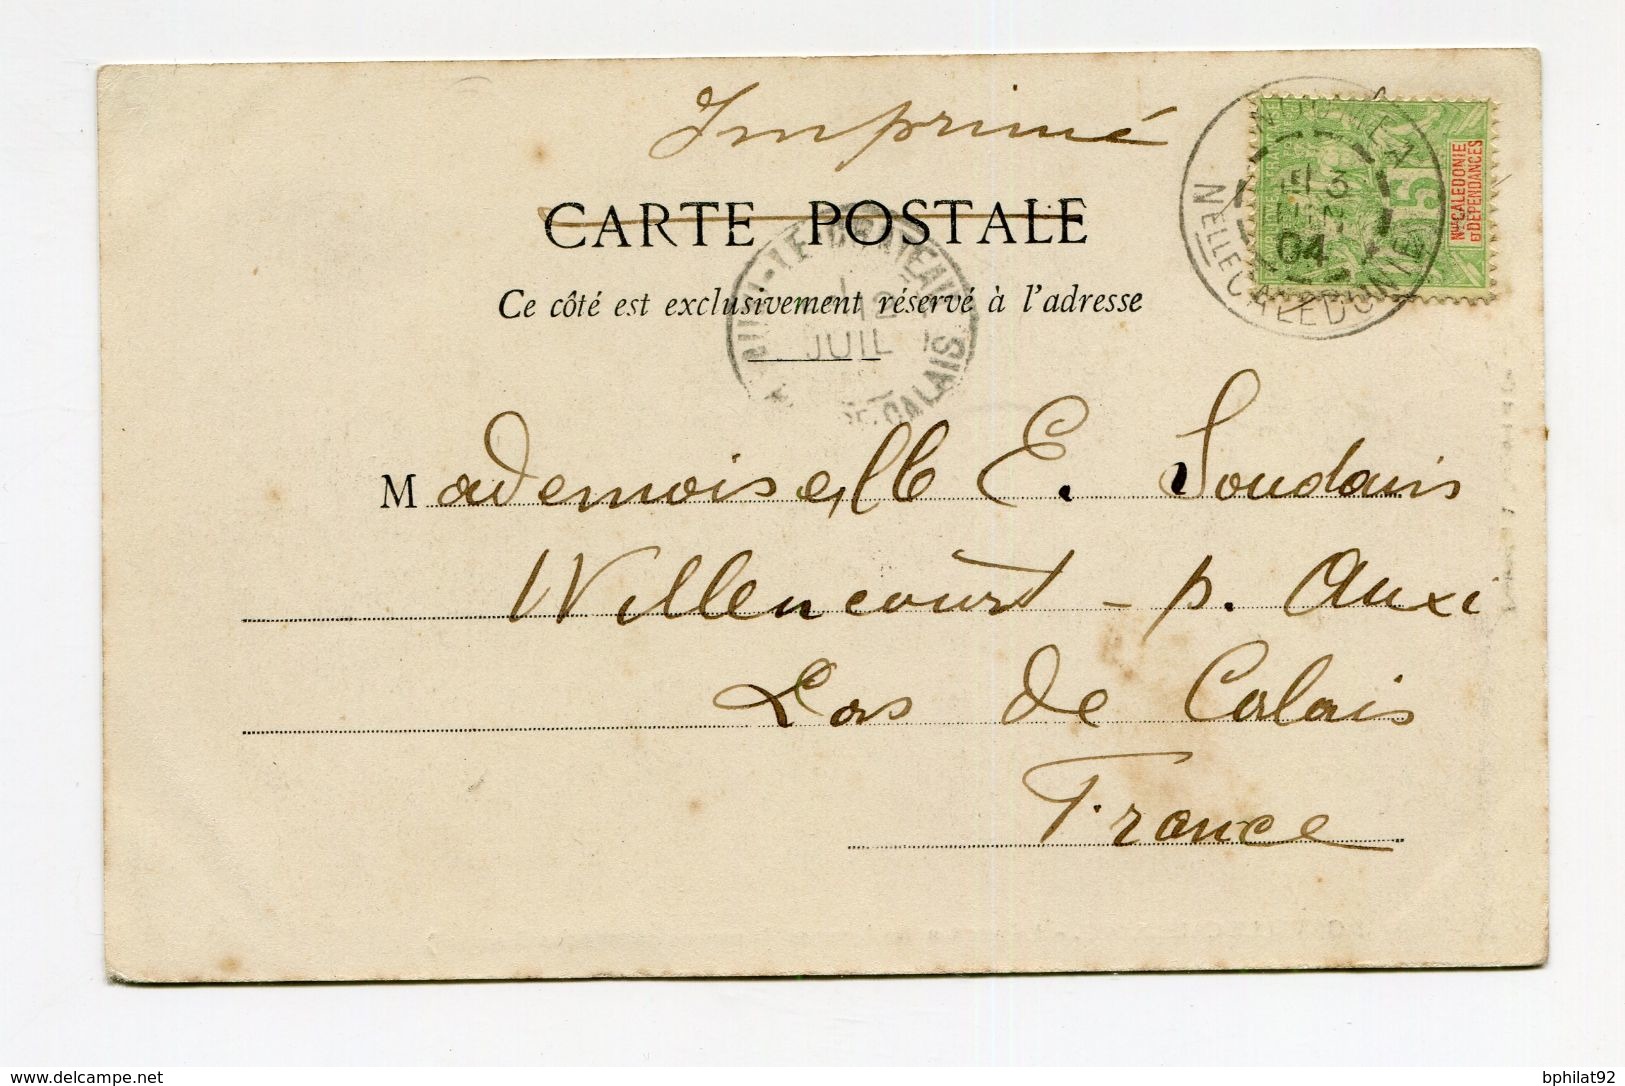 Imprimé
CARTE POSTALE
Ce côté est exclusivement réservé à l'adresse
NOUMEA
3
JUIN
04
NELLE CALEDONIE
5
NLLE CALEDONIE
ET DEPENDANCES
12
JUIL
CALAIS
Mademoiselle E. Soudais
Willencourt - p. Auxi
Pas de Calais
France
www.delcampe.net
bphilat92